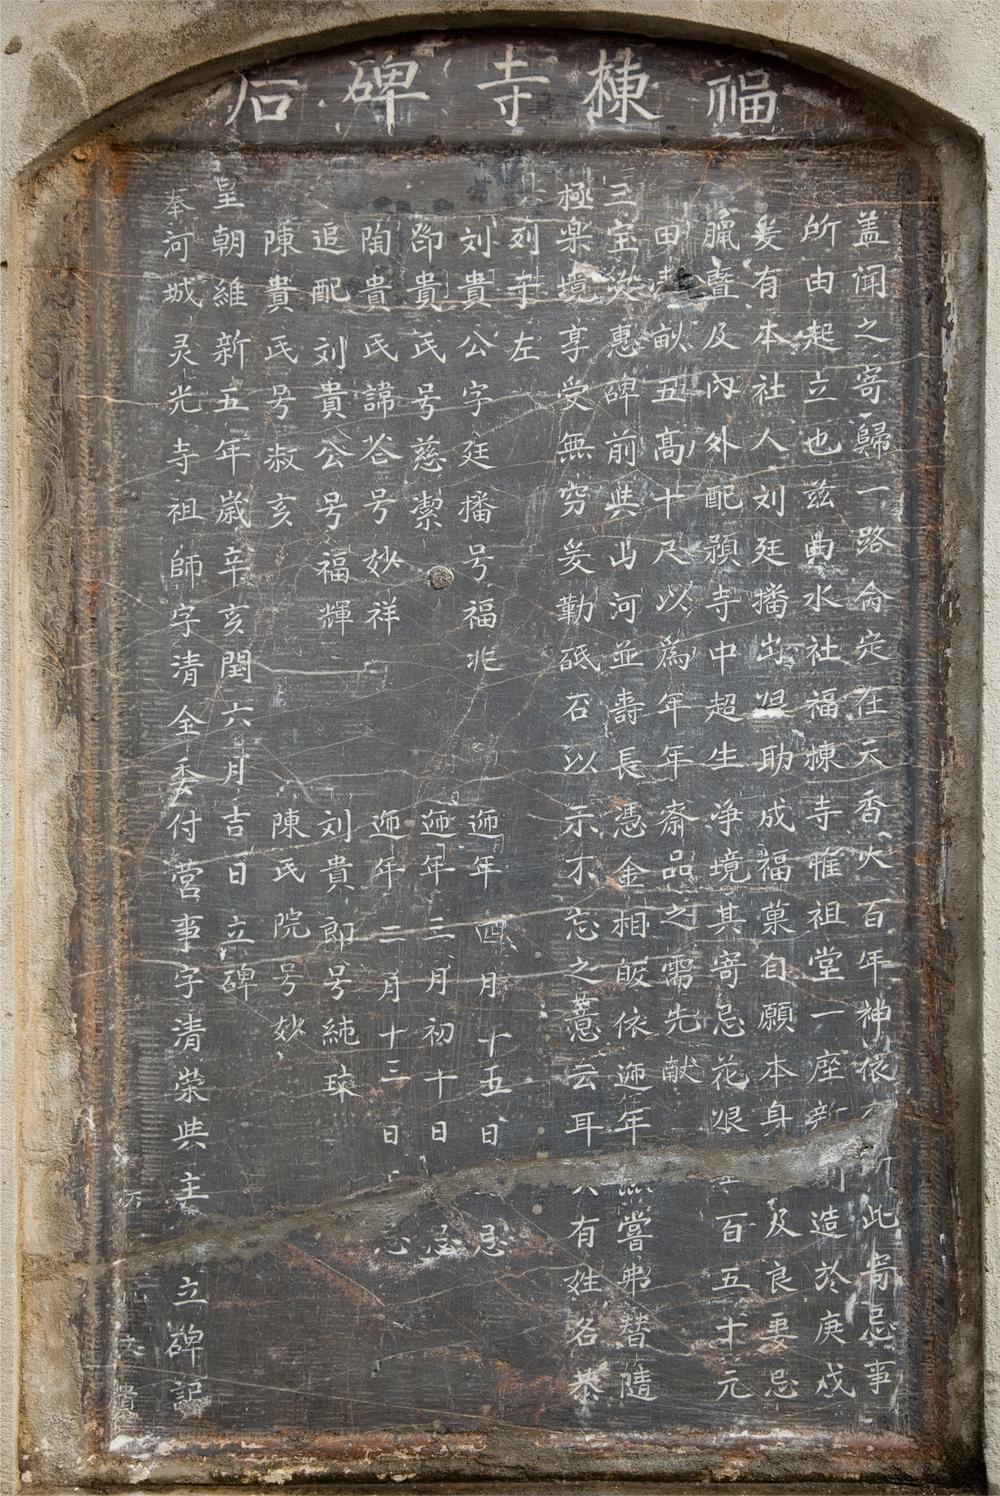 福棟寺碑后
盖闻之寄歸一路禽定在天香火百年神依此寄忌事
所由起立也兹曲水社福棟寺惟祖堂一座新造於庚戌
爰有本社人刘廷播出恳助成福菓自願本身及良妻忌
臘暨及内外配預寺中超生净境其寄忌花艰百五十元
田畝五高十尺以為年年斎品之需先献
三宝波惠碑前典山河並壽長憑金相皈依递年嘗弗替隨
極楽境享受無穷爰勤砥石以示不忘之薏云耳有姓名恭
列于左
刘貴公字廷播号福兆 递年四月十五日忌
郃貴氏号慈潔 递年三月初十日忌
陶貴氏諱谷号妙祥 递年二月十三日忌
追配刘貴公号福輝 刘貴郎号純琰
陳貴氏号叔亥 陳氏院号妙
皇朝維新五年歲辛亥閏六月吉日立碑
奉河城灵光寺祖師字清全委付营事字清荣典主立碑記